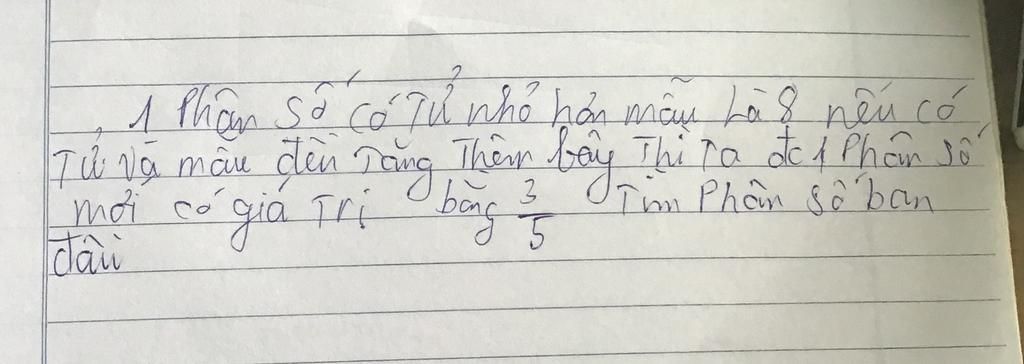 1 Phân số có Tử nhỏ hơn mẫu Là 8 nếu có
Tử và mẫu đều Tăng Thêm bảy Thì Ta đc 1 Phân số
mới có giá Trị bằng 3/5 Tìm Phân số ban
đầu